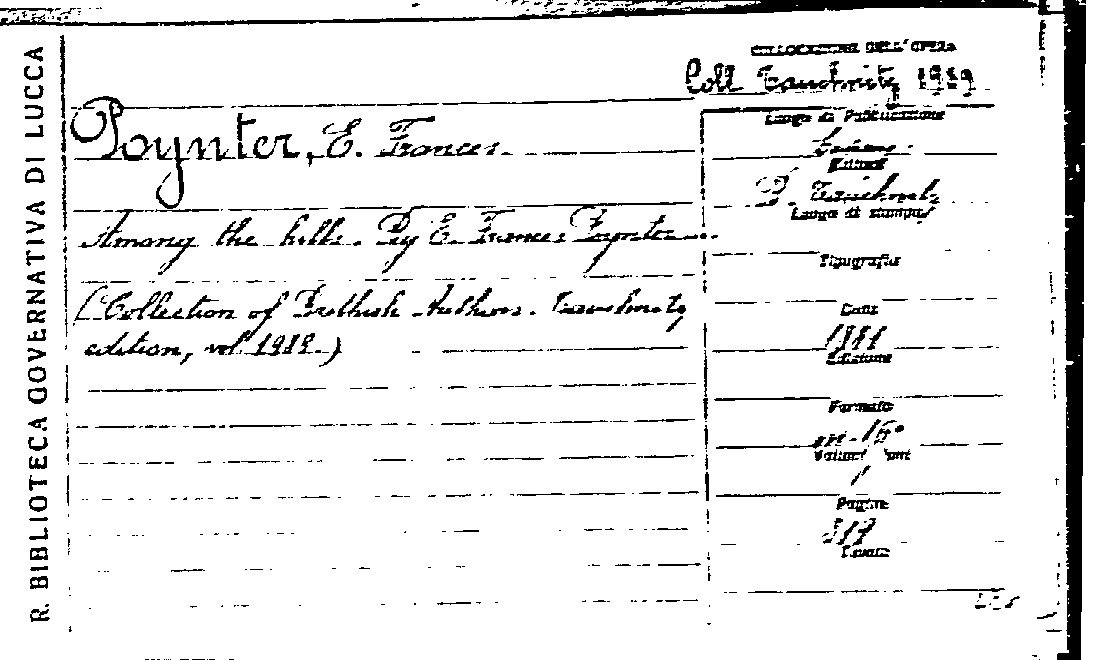 R. BIBLIOTECA GOVERNATIVA DI LUCCA
COLLOCAZIONE DELL'OPERA
Coll Tauchnitz 1919
Poynter, E. Frances.
Among the hills. By E. Frances Poynter
(Collection of British Authors. Tauchnitz
edition, vol 1919.)
Luogo di Pubblicazione
Editore
B. Tauchnitz
Luogo di stampa
Tipografia
Data
1881
Edizione
Formato
in-16°
Volumi
1
Pagine
319